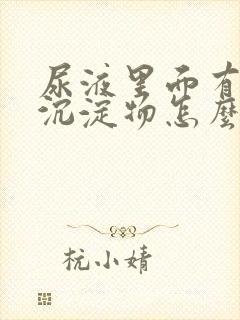 尿液里面有
沉淀物怎麽
杭小婧